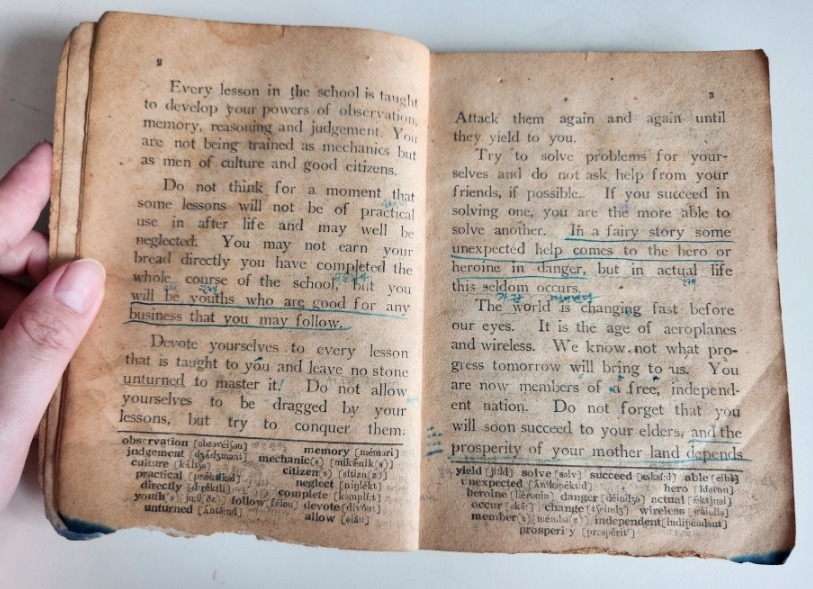 9
Every lesson in the school is taught
to develop your powers of observation,
memory, reasoning and judgement. You
are not being trained as mechanics but
as men of culture and good citizens.
Do not think for a moment that
some lessons will not be of practical
use in after life and may well be
neglected. You may not earn your
bread directly you have completed the
whole course of the school, but you
will be youths who are good for any
business that you may follow.
Devote yourselves to every lesson
that is taught to you and leave no stone
unturned to master it! Do not allow
yourselves to be dragged by your
lessons, but try to conquer them.
observation memory
judgement mechanic(s)
culture citizen(s)
practical neglect
directly complete
youth(s) follow devote
unturned allow
3
Attack them again and again until
they yield to you.
Try to solve problems for your-
selves and do not ask help from your
friends, if possible. If you succeed in
solving one, you are the more able to
solve another. In a fairy story some
unexpected help comes to the hero or
heroine in danger, but in actual life
this seldom occurs.
The world is changing fast before
our eyes. It is the age of aeroplanes
and wireless. We know not what pro-
gress tomorrow will bring to us. You
are now members of a free, independ-
ent nation. Do not forget that you
will soon succeed to your elders, and the
prosperity of your mother land depends
yield solve succeed able
unexpected hero
heroine danger actual
occur change wireless
member(s) independent
prosperity